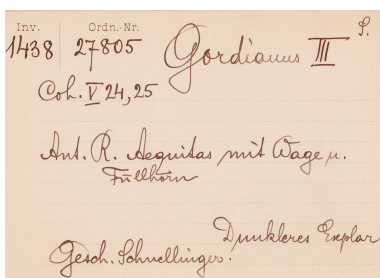 Inv. Ordn. Nr.
1438 27805 Gordianus III S.
Coh. V 24, 25
Ant. R. Aequitas mit Wage u.
Füllhorn
Dunkleres Explar
Gesch. Schnellinger.